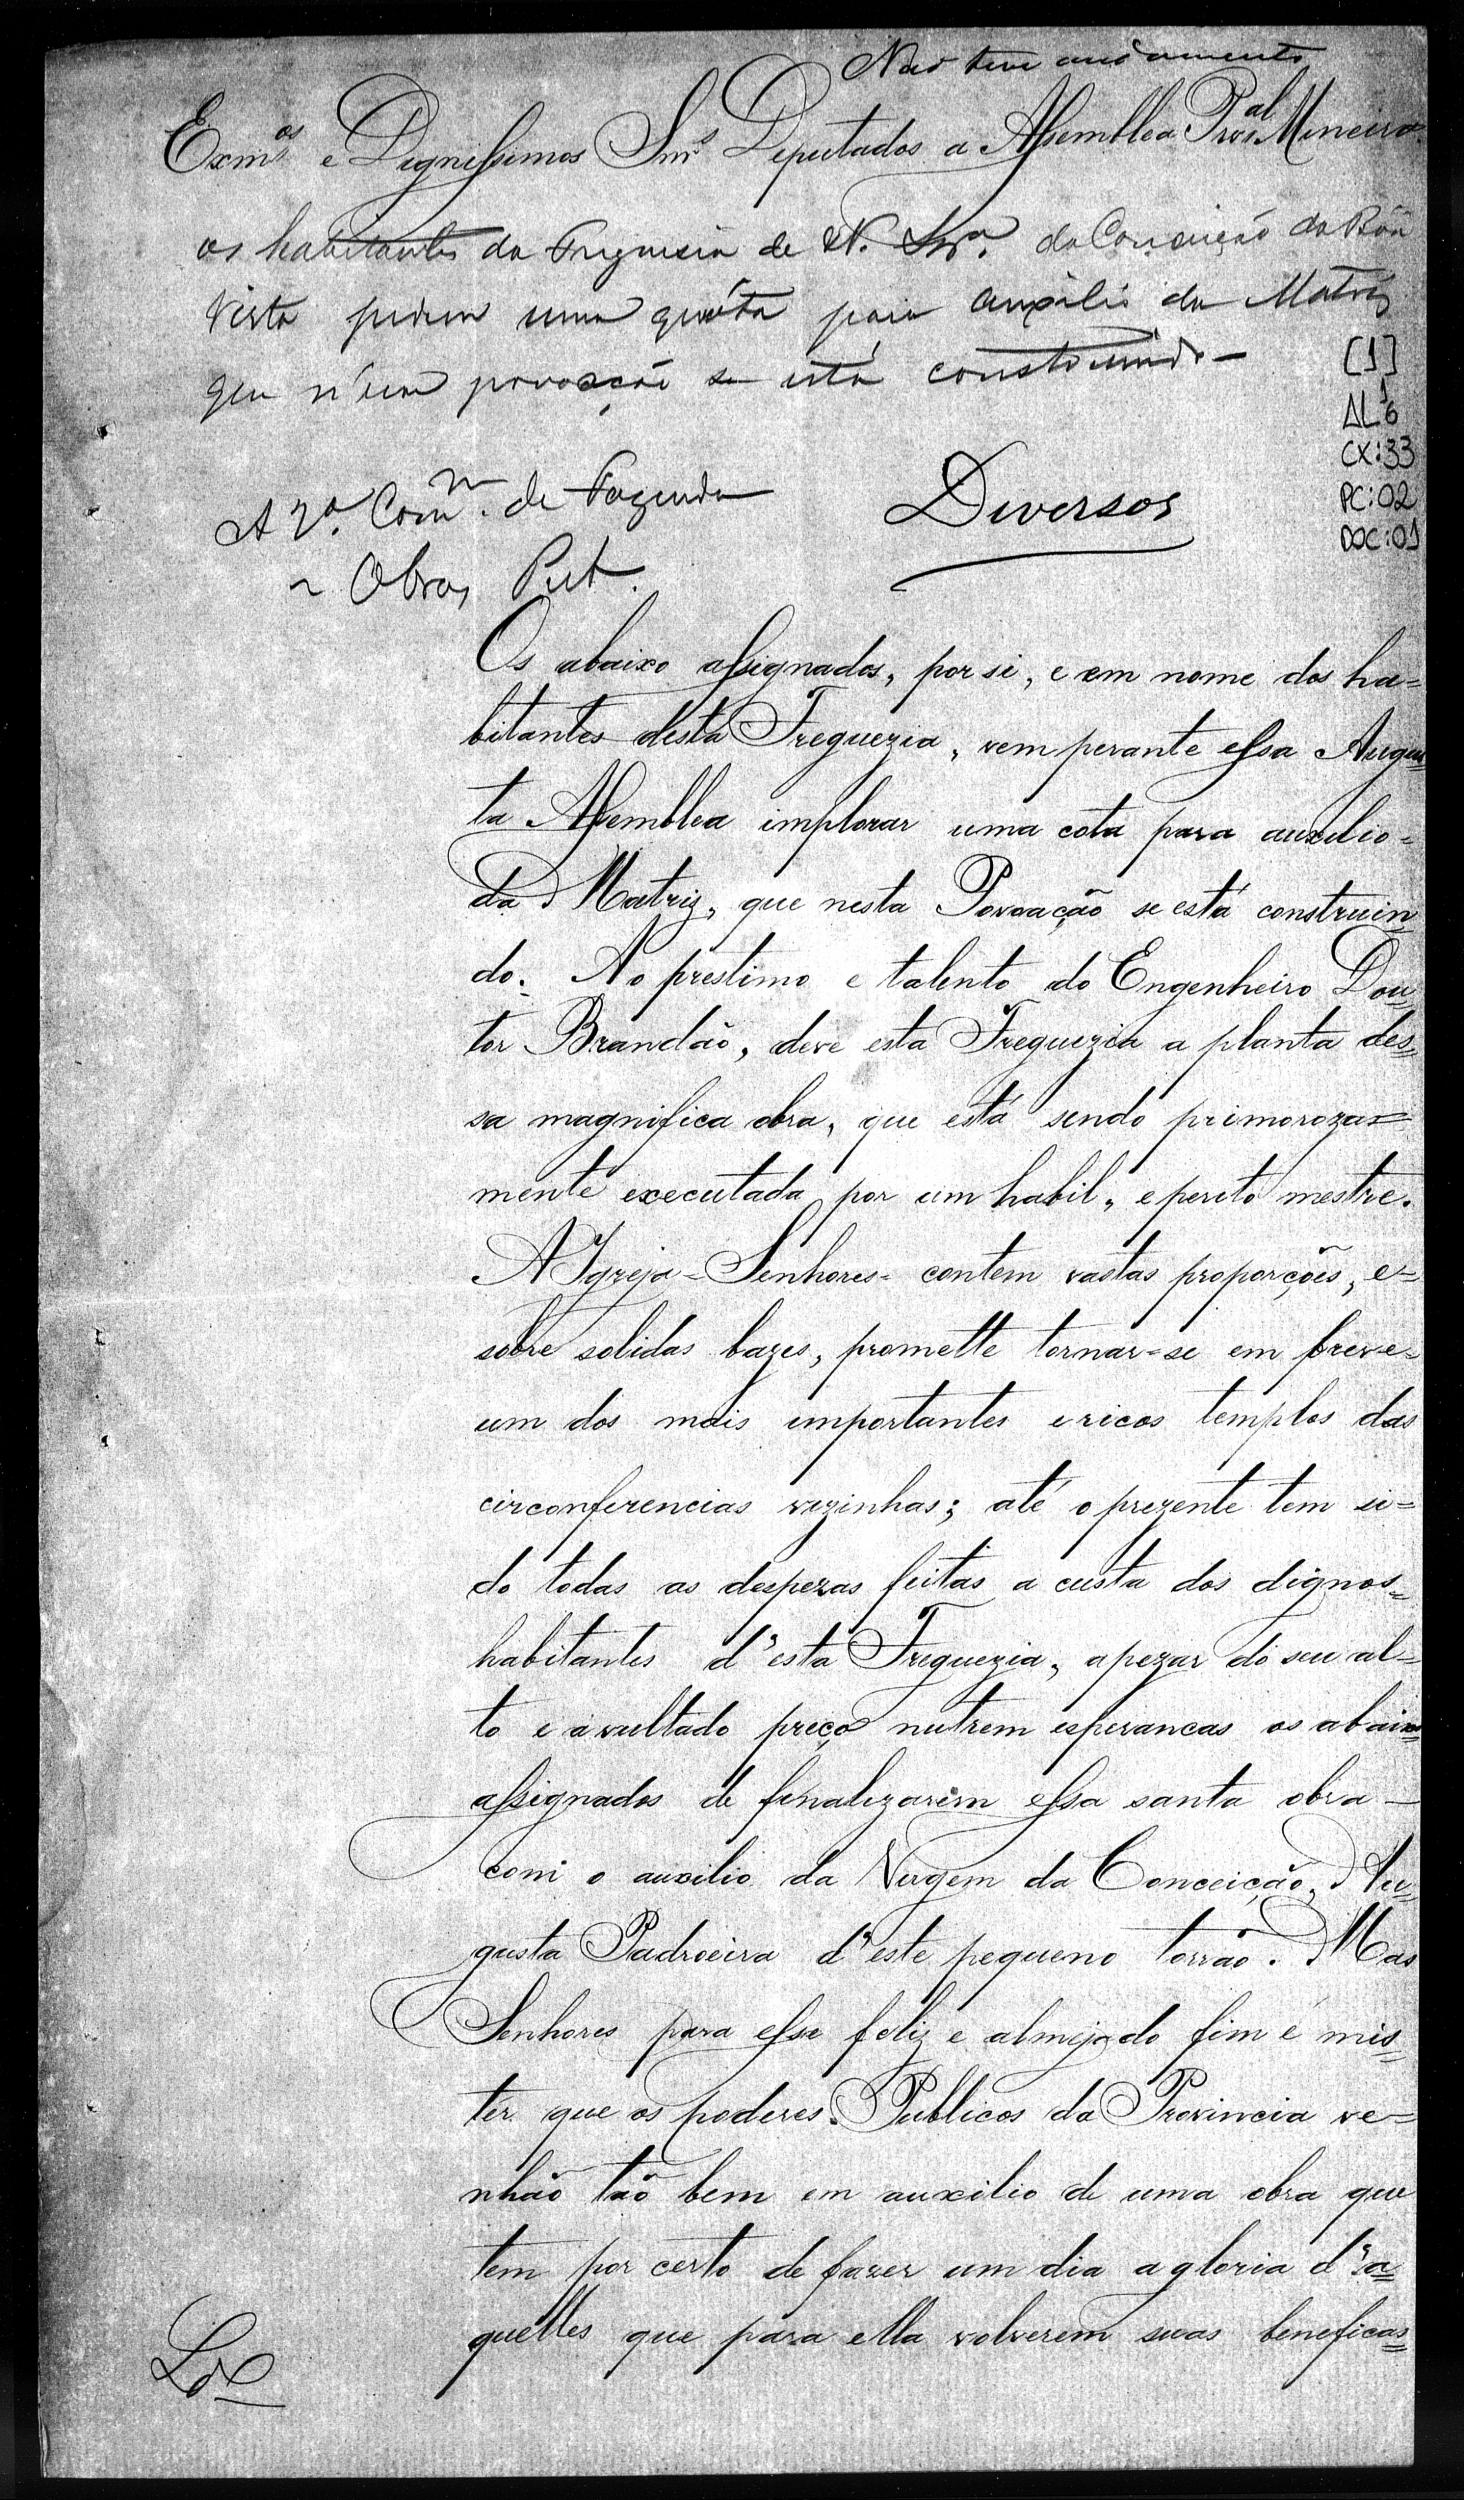 Não teve andamento
Exm.os e Dignissimos Snr.s Deputados a Assemblea Prov.al Mineira.
os habitantes da Freguesia de N. Snrª. da Conceição da Bôa
Vista pedem uma quóta para auxilio da Matriz
que n'essa povoação se está construindo—
[1]
AL 1 6
CX:33
PC:02
DOC:01
A 2ª. Com.m de Fazenda
Diversos
e Obras Pub.
Os abaixo assignados, por si, e em nome dos ha=
bitantes desta Freguezia, vem perante essa Augus=
ta Assemblea implorar uma cota para auxilio=
da Matriz, que nesta Povoação se está construin=
do. Ao prestimo e talento do Engenheiro Dou=
tor Brandão, deve esta Freguezia a planta des=
sa magnifica obra, que está sendo primoroza=
mente executada por um habil, e perito mestre.
A Igreja = Senhores = contem vastas proporções, e=
sobre solidas bazes, promette tornar-se em breve=
um dos mais importantes e ricos templos das
circonferencias vezinhas; até o prezente tem si=
do todas as despezas feitas a custa dos dignos=
habitantes d'esta Freguezia, apezar do seu al=
to e avultado preço nutrem esperancas os abaixo=
assignados de finalizarem essa santa obra —
com o auxilio da Virgem da Conceição, Au=
gusta Padroeira d'este pequeno torrão. Mas
Senhores para esse feliz e almejado fim é mis=
ter que os poderes Publicos da Provincia ve=
nhão tão bem em auxilio de uma obra que
tem por certo de fazer um dia a gloria d'a=
quelles que para ella volverem suas beneficas=